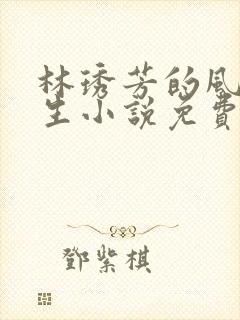 林琇芳的風
生小說免費
鄧紫棋